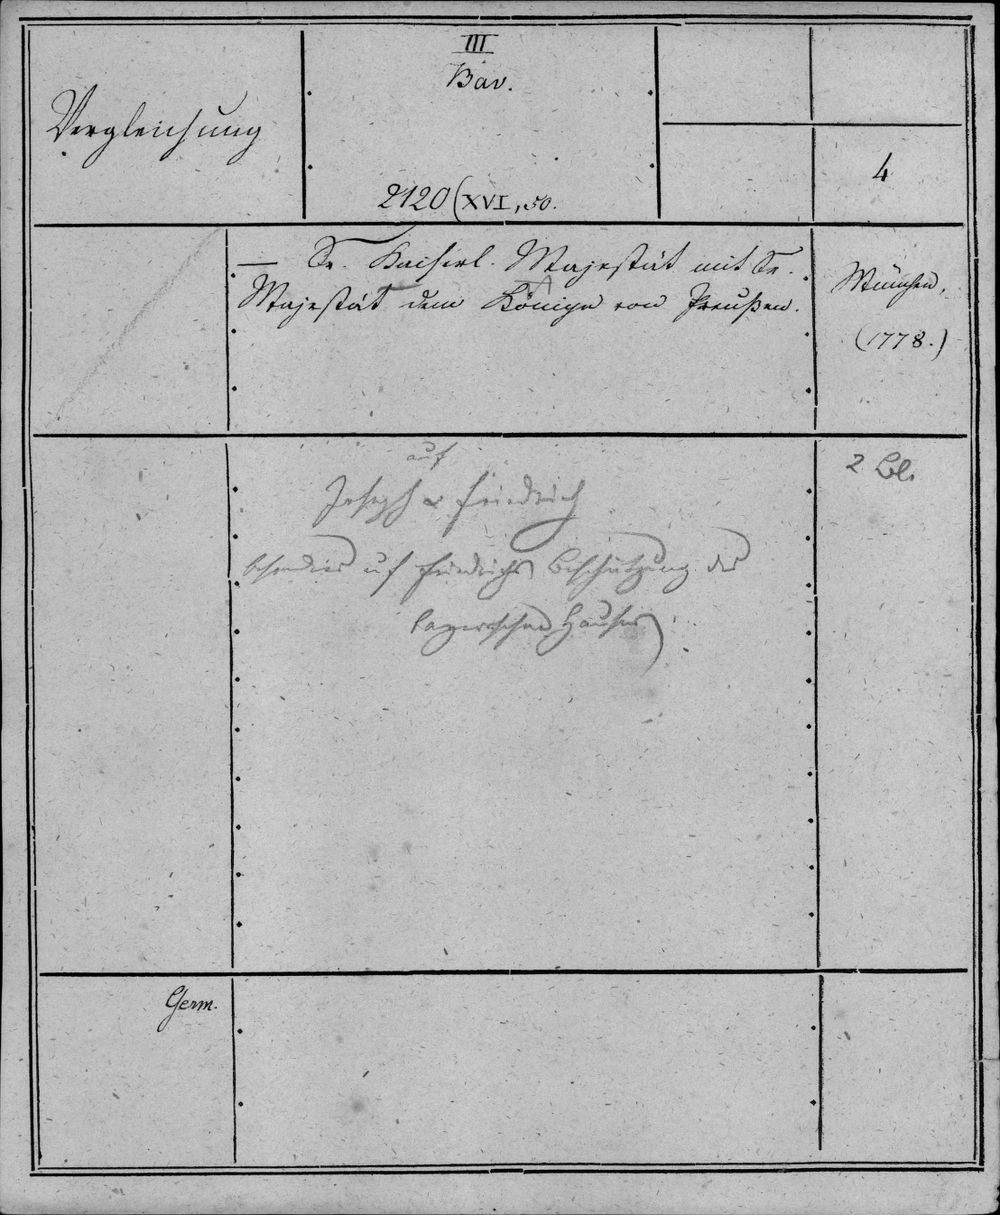 Vergleichung
III
Bav.
2120(XVI,50.
4
— Sr. Kaiserl. Majestät mit Sr.
Majestät dem Könige von Preußen.
München,
(1778.)
auf
Joseph u Friedrich
besonders auf Friedrichs Beschützung des
bayerischen Hauses
2 Bl.
Germ.